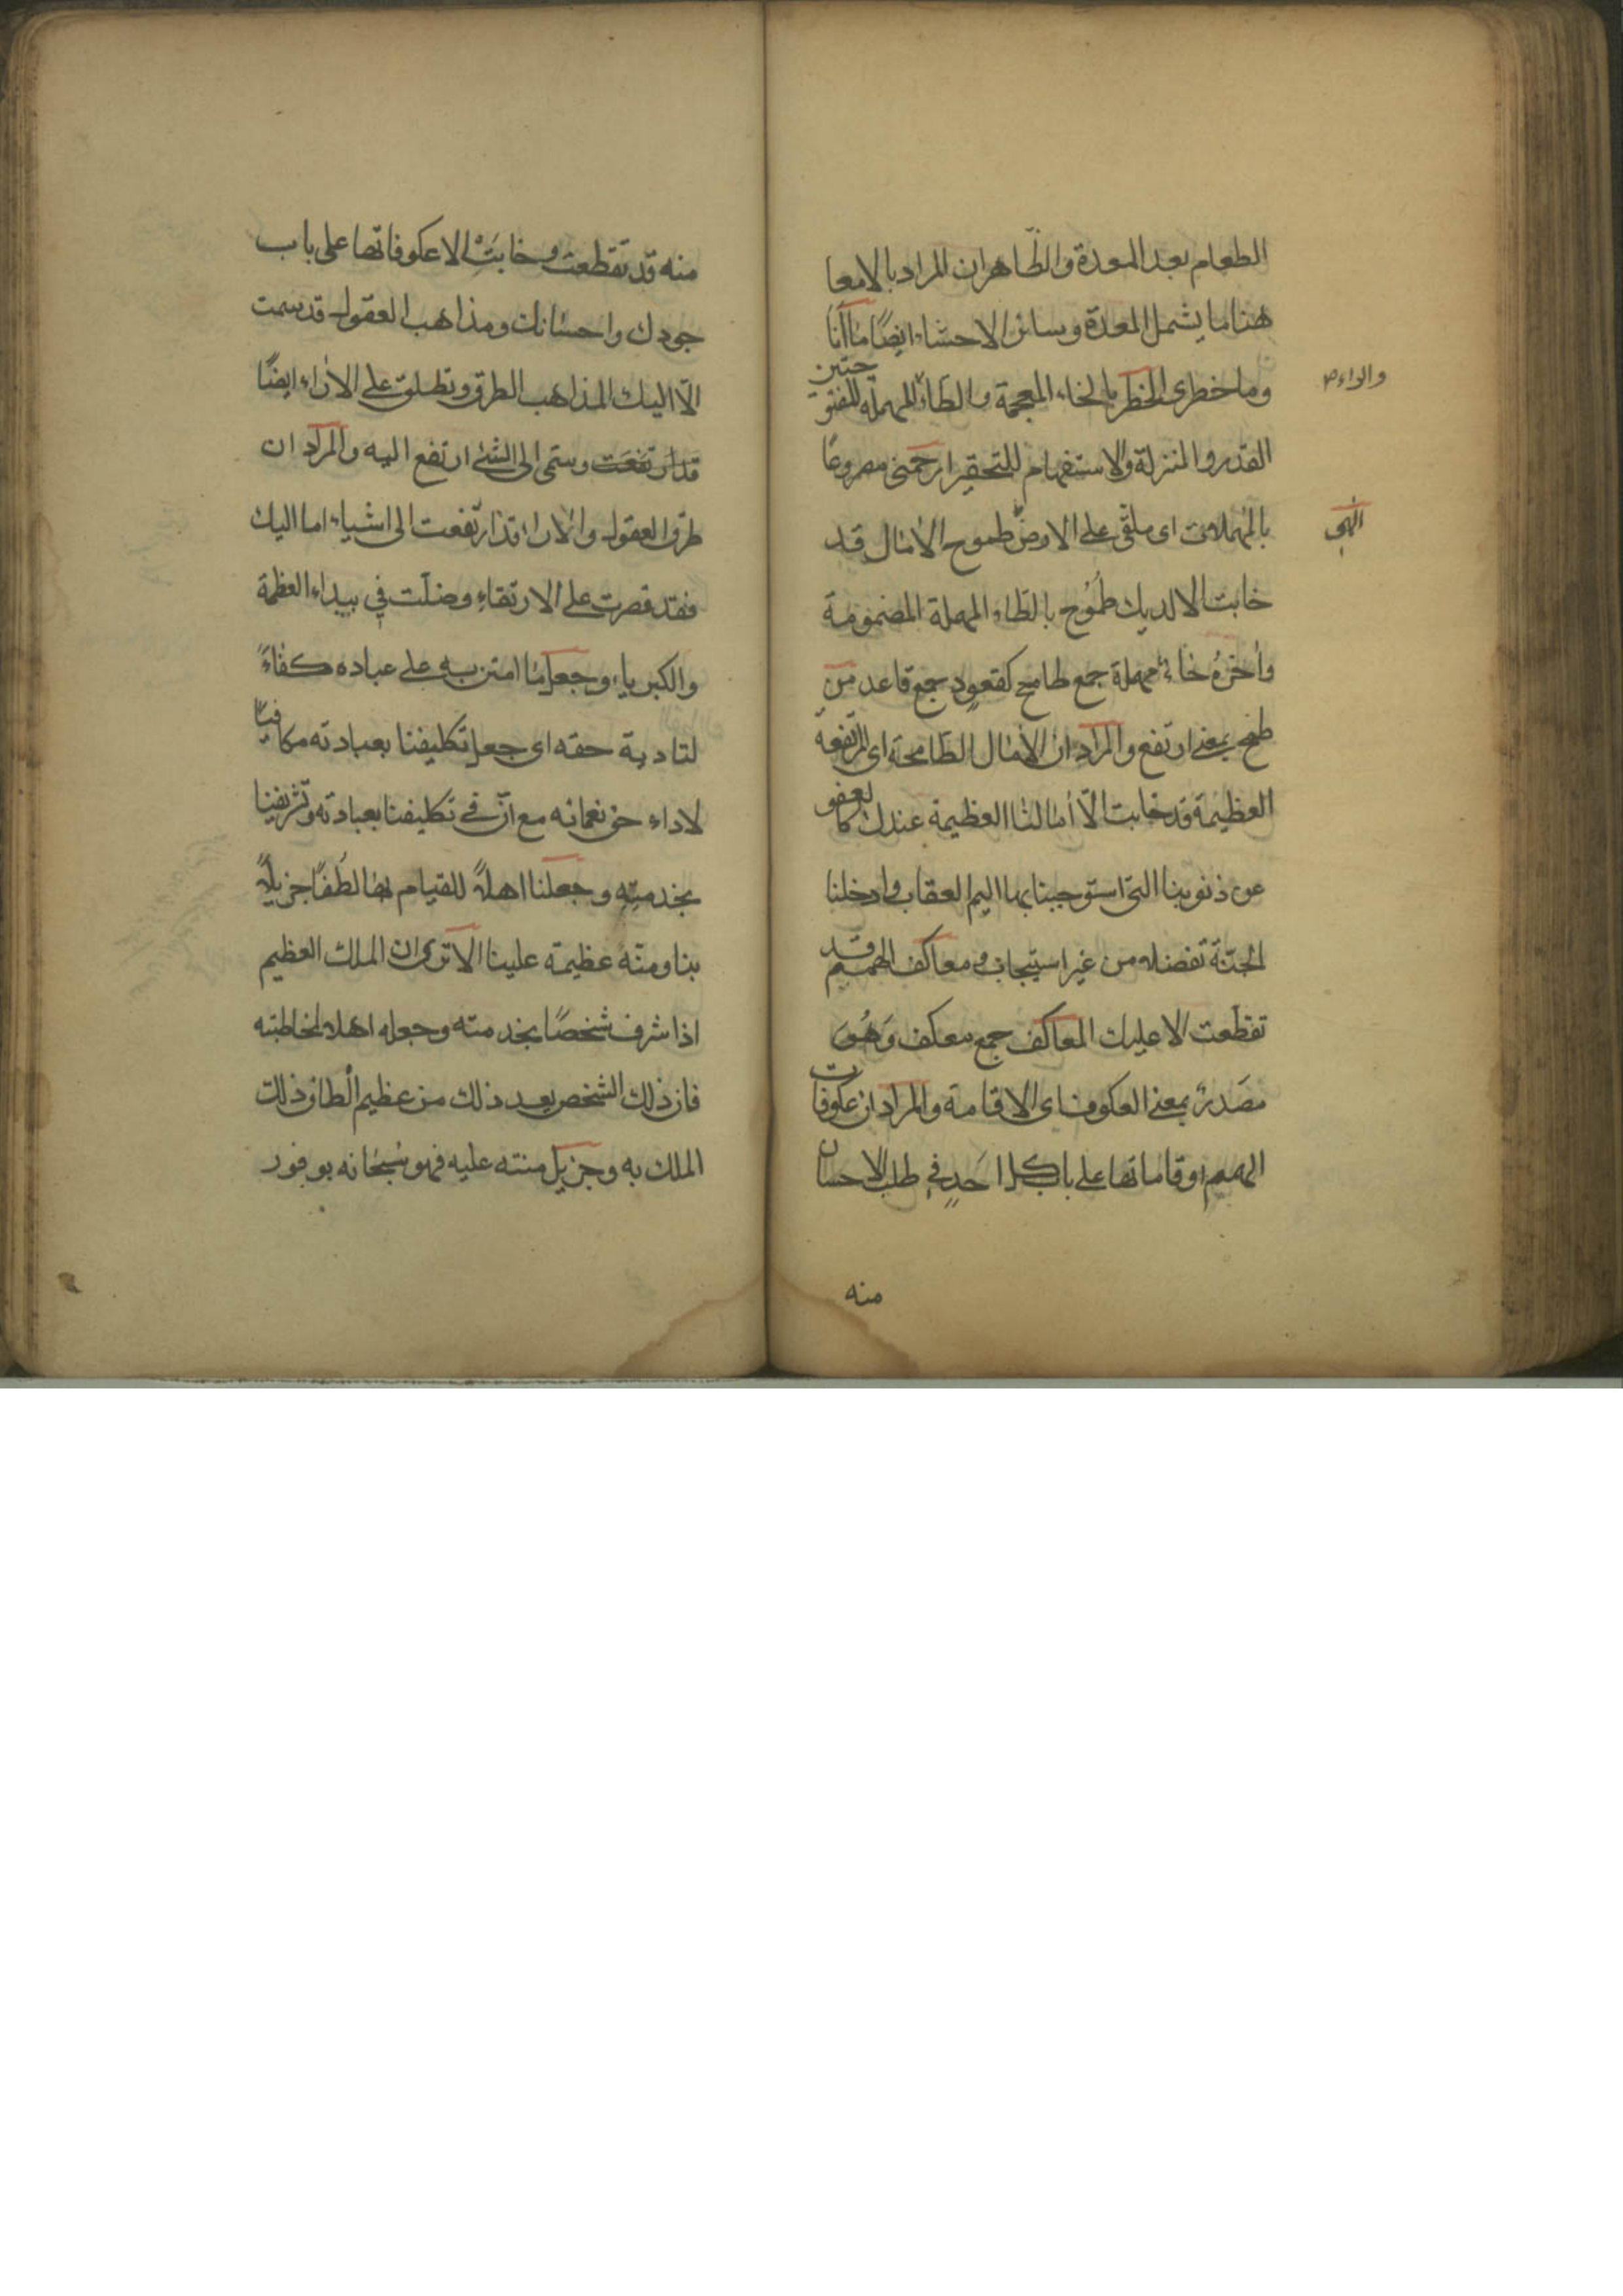 الطعام بعد المعدة والظّاهر ان المراد بالامعا
هنا ما يشمل المعدة وسائر الاحشاء ايضًا ما انا
وما خطرى الخطر بالخاء المعجمة والطاء المهملة المفتوحتين
والراء ص
القدر والمنزلة والاستفهام للتحقير ارحمنى مصروعًا
بالمهملات اى ملقى على الارض طموح الامال قد
الهى
خابت الا لديك طُمُوح بالطاء المهملة المضمومة
واخرُه حاء مهملة جمع طامح كقعودٍ جمع قاعد من
طمح بمعنى ارتفع والمراد ان الامال الطامحة اى المرتفعة
العظيمة قد خابت الّا أمالنا العظيمة عندك كالعفو
عن ذنوبنا التى استوجبنا بها اليم العقاب وادخلنا
الجنّة تفضلا من غير استيجاب ومعاكف الهمم قد
تقطّعت الا عليك المعاكف جمع معكف وَهُوَ
مصَدرٌ بمعنى العكوف اى الاقامة والمراد ان عكوفات
الهمم اوقاماتها على باب كل احَدٍ فى طلب الاحسان
منه
منه قد تقطعت وخابَتْ الا عكوفاتها على باب
جودك واحسانك ومذاهب العقول قد سمت
الّا اليك المذاهب الطرق وتطلق على الاراء ايضًا
قد ارتفعَت وسمى الى الشئ ارتفع اليه والمراد ان
طرق العقول والاراء قد ارتفعت الى اشياء اما اليك
فقد قصرت على الارتقاءِ وضلّت فى بيداء العظمة
والكبرياء وجعل ما امتن به على عباده كفاءً
لتادية حقه اى جعل تكليفنا بعبادته مكافيًا
لاداء حق نعمائه مع انّ فى تكليفنا بعبادته وتشريفنا
بخدمتِهِ وجعلنا اهلاً للقيام بها لطُفًا جزيلاً
بنا ومنّة عظيمة علينا الا ترى ان الملك العظيم
اذا شرف شخصًا بخدمته وجعله اهلا لمخاطبته
فان ذلك الشخص يعد ذلك من عظيم الطاف ذلك
الملك به وجزيل منته عليه فهو سُبحَانه بوفور